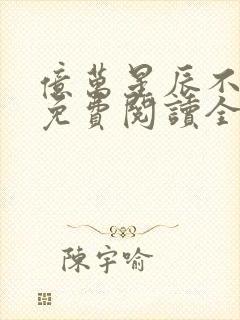 億萬星辰不
免費閱讀全
陳宇喻